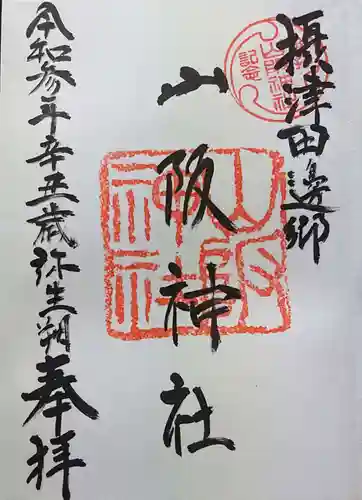 摂津田邊郷
山阪神社
令和参年辛丑歳弥生朔奉拝
山阪神社
記念